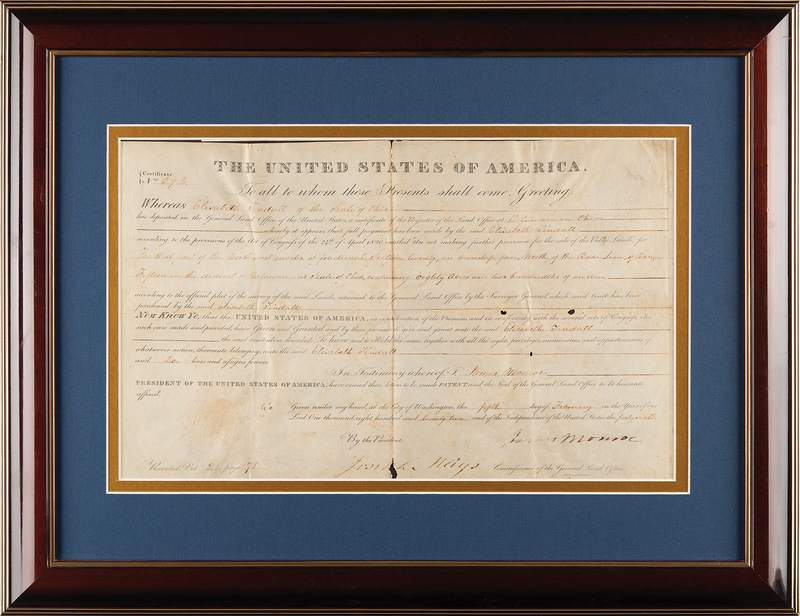 THE UNITED STATES OF AMERICA.
{Certificate.
{No.
To all to whom these Presents shall come, Greeting.
Whereas Elizabeth Tindall of the State of Ohio
has deposited in the General Land Office of the United States, a certificate of the Register of the Land Office at Delaware in Ohio
whereby it appears that full payment has been made by the said Elizabeth Tindall
according to the provisions of the Act of Congress of the 24th of April 1820, entitled An act making further provision for the sale of the Public Lands, for
The West part of the North west quarter of fractional Section twenty, in township four North of the Base Line, of Range
Fifteen in the district of Delaware and State of Ohio, containing Eighty Acres and two hundredths of an acre
according to the official plat of the survey of the said Lands, returned to the General Land Office by the Surveyor General, which said tract has been
purchased by the said Elizabeth Tindall
Now Know Ye, that the UNITED STATES OF AMERICA, in consideration of the Premises, and in conformity with the several acts of Congress, in
such case made and provided, have Given and Granted, and by these presents do give and grant, unto the said Elizabeth Tindall
the said tract above described: To have and to Hold the same, together with all the rights, privileges, immunities and appurtenances of
whatsoever nature, thereunto belonging, unto the said Elizabeth Tindall
and heirs and assigns forever.
In Testimony whereof, I, James Monroe
PRESIDENT OF THE UNITED STATES OF AMERICA, have caused these letters to be made PATENT, and the Seal of the General Land Office to be hereunto
affixed.
Given under my hand, at the City of Washington, the fifth day of February in the Year of our
Lord One thousand eight hundred and twenty two and of the Independence of the United States the forty sixth
By the President,
James Monroe
Recorded Vol. page
Josiah Meigs Commissioner of the General Land Office